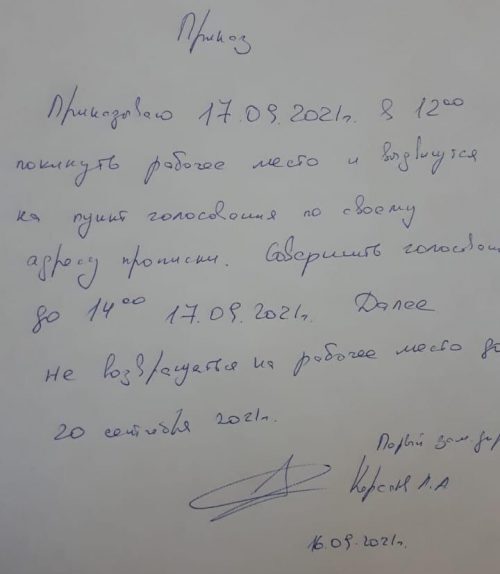 Приказ
Приказываю 17.09.2021г. в 12⁰⁰
покинуть рабочее место и выдвинутся
на пункт голосования по своему
адресу прописки. Совершить голосован
до 14⁰⁰ 17.09.2021г. Далее
не возвращаться на рабочее место до
20 сентября 2021г.
зам. дир
А.А
16.09.2021г.